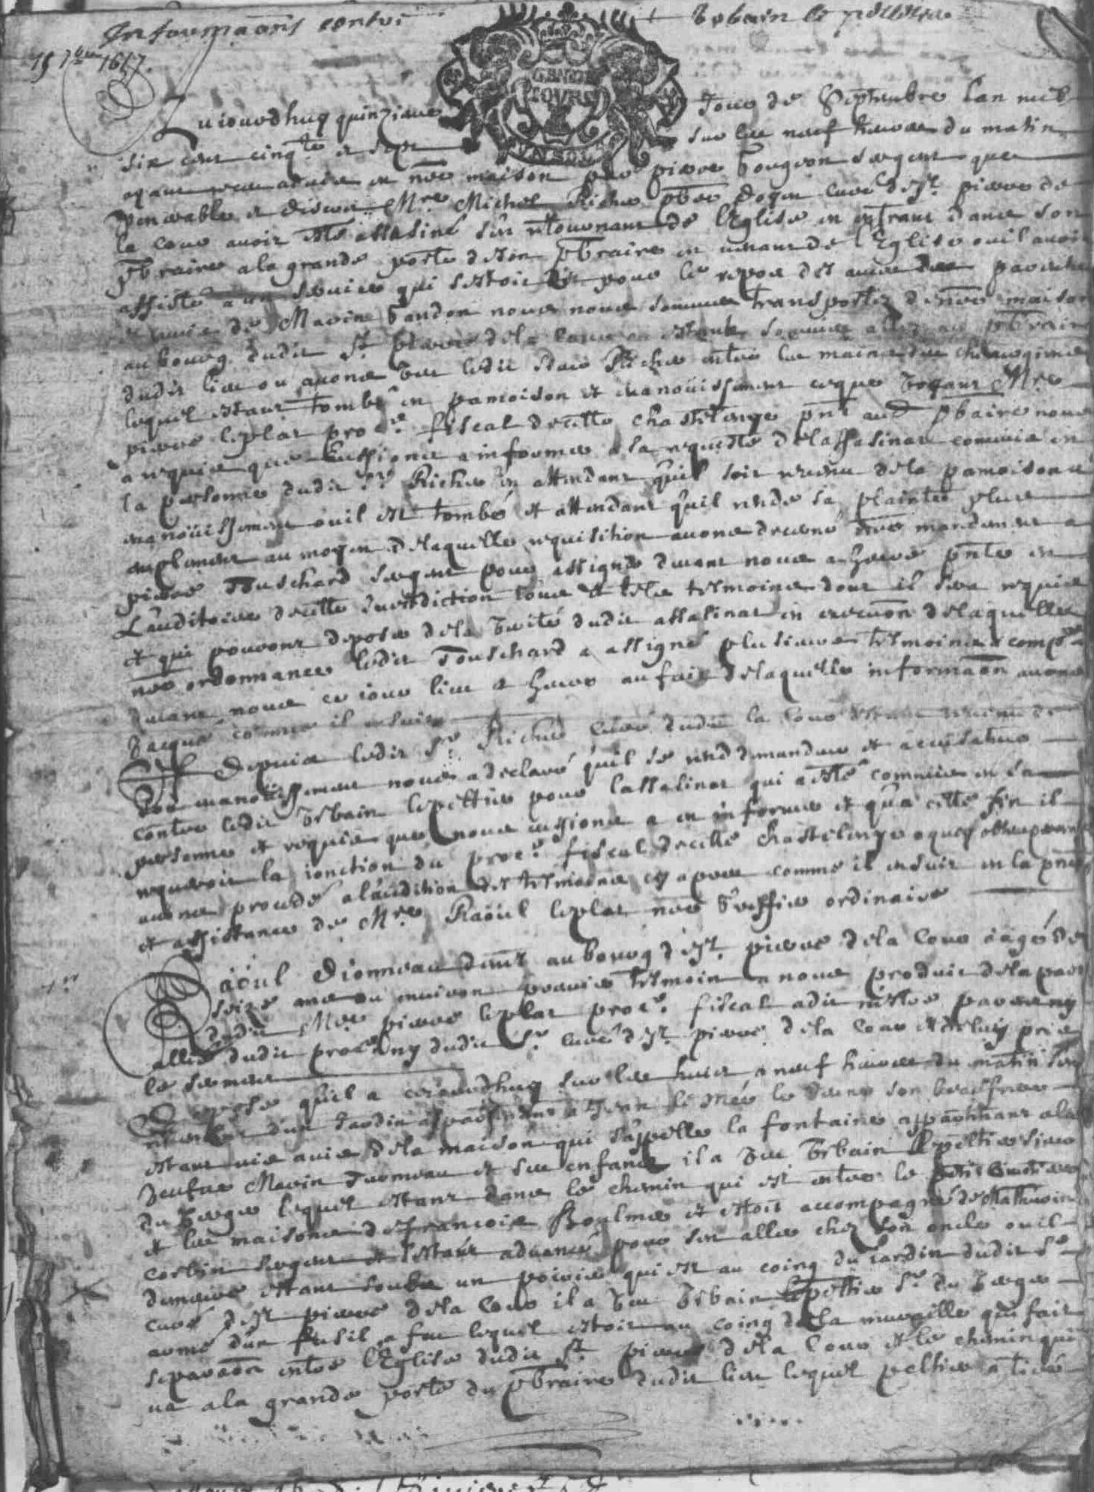 Informaons contre Urbain le peltier
15 7bre 1657.
GENER
TOURS
UN SOL
Aujourdhuy quinziesme Jour de Septembre lan mil
six cens cinqte et sept sur les neuf heures du matin
ayant receu advis en nre maison par pierre sergent que
venerable et discret Mre Michel Riche pbre Doyen curé de St pierre de
la Cour avoir esté assasiné sen retournant de l'Eglise en entrant dans son
pbraire a la grande porte de son pbraire en venant de l'Eglise ou il avoit
assisté a un service qui sestoit dit pour le repos des ames des
de Marin baudon nous nous sommes transportez de nre maison
au bourg dudit St pierre de la Cour ou estant sommes allez au pbraire
dudit lieu ou avons veu ledit sieur Riche entre les mains des chirurgiens
lequel estant tombé en pamoison et evanouissement ce que voyant Mre
pierre leplat procr fiscal de cette chastelenye pnt aud pbraire nous
a requis que eussions a informer a sa requeste de lassasinat commis en
la personne dudit Sr Riche en attendant qu'il soit revenu de la pamoison et
evanouissement ou il est tombé et attendant qu'il rende sa plainte plus
amplement au moyen de laquelle requisition avons decerné nre mandement a
pierre Touschard sergent pour assigner devant nous a heure pnte en
Lauditoire de cette Jurediction tous et tels tesmoins dont il sera requis
et qui pouront deposer de la verité dudit assasinat en execuon de laquelle
nre ordonnance ledit Touschard a assigné plusieurs tesmoins a comp
devant nous ce jour lieu et heure au fait de laquelle informaon avons
vacqué comme il ensuit
Et Depuis ledit Sr Riche curé dudit la Cour estant revenu de
son evanouissement nous a declaré qu'il se rend demandeur et accusateur
contre ledit Urbain lepeltier pour lassasinat qui a esté commis en sa
personne et requis que nous eussions a en informer et qu'a cette fin il
requeroit la jonction du procr fiscal de cette chastelenye a quoy obtemperant
avons procedé a laudition des tesmoins cy apres comme il ensuit en la pnce
et assistance de Mre Raoul leplat nre Greffier ordinaire
1er
Raoul Dionneau demt au bourg de St pierre de la Cour aagé de
seize ans ou environ premier tesmoin a nous produit de la part
dudit Mre pierre leplat procr fiscal a dit nestre parent ny
allié dudit procr ny dudit Sr curé de St pierre de la Cour et de luy pris
le serment
Depose qu'il a cejourdhuy sur les huit a neuf heures du matin sen
dun Jardin appartenant a Jean le Mée le jeune son beaufrere
estant vis avis de la maison qui s'appelle la fontaine appartenant a la
veufve Marin Juoneau et ses enfans il a veu Urbain Lepeltier sieur
du Verger lequel estant dans le chemin qui est entre le petit
et les maisons de francois Roulmer et estoit accompagné de Mathurin
corbin sergent et sestant advancé pour sen aller chez son oncle ou il
demeure estant soubz un poirier qui est au coing du jardin dudit Sr
curé de St pierre de la Cour il a veu Urbain lepeltier Sr du Verger
armé dun fusil a feu lequel estoit au coing de la muraille qui fait
separaon entre l'Eglise dudit St pierre de la Cour et le chemin qui
va a la grande porte du pbraire dudit lieu lequel peltier a tiré